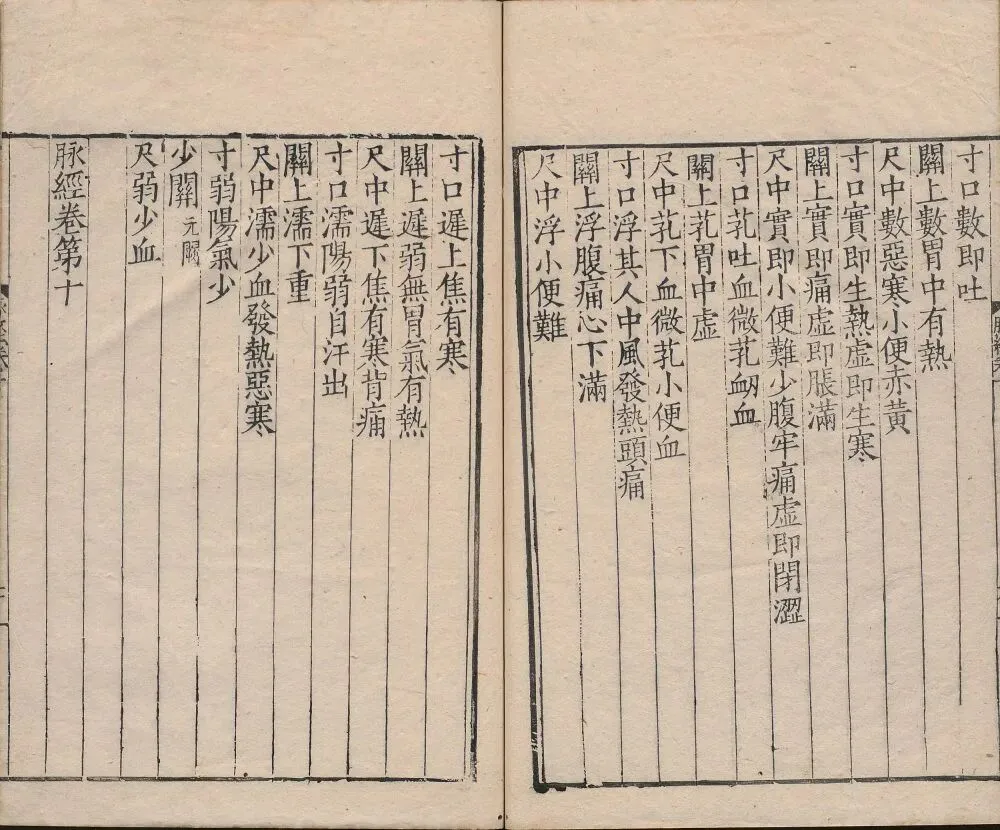 寸口數即吐
關上數胃中有熱
尺中數惡寒小便赤黃
寸口實即生熱虛即生寒
關上實即痛虛即脹滿
尺中實即小便難少腹牢痛虛即閉澀
寸口芤吐血微芤衂血
關上芤胃中虛
尺中芤下血微芤小便血
寸口浮其人中風發熱頭痛
關上浮腹痛心下滿
尺中浮小便難
寸口遲上焦有寒
關上遲弱無胃氣有熱
尺中遲下焦有寒背痛
寸口濡陽弱自汗出
關上濡下重
尺中濡少血發熱惡寒
寸弱陽氣少
少關元闕
尺弱少血
脉經卷第十